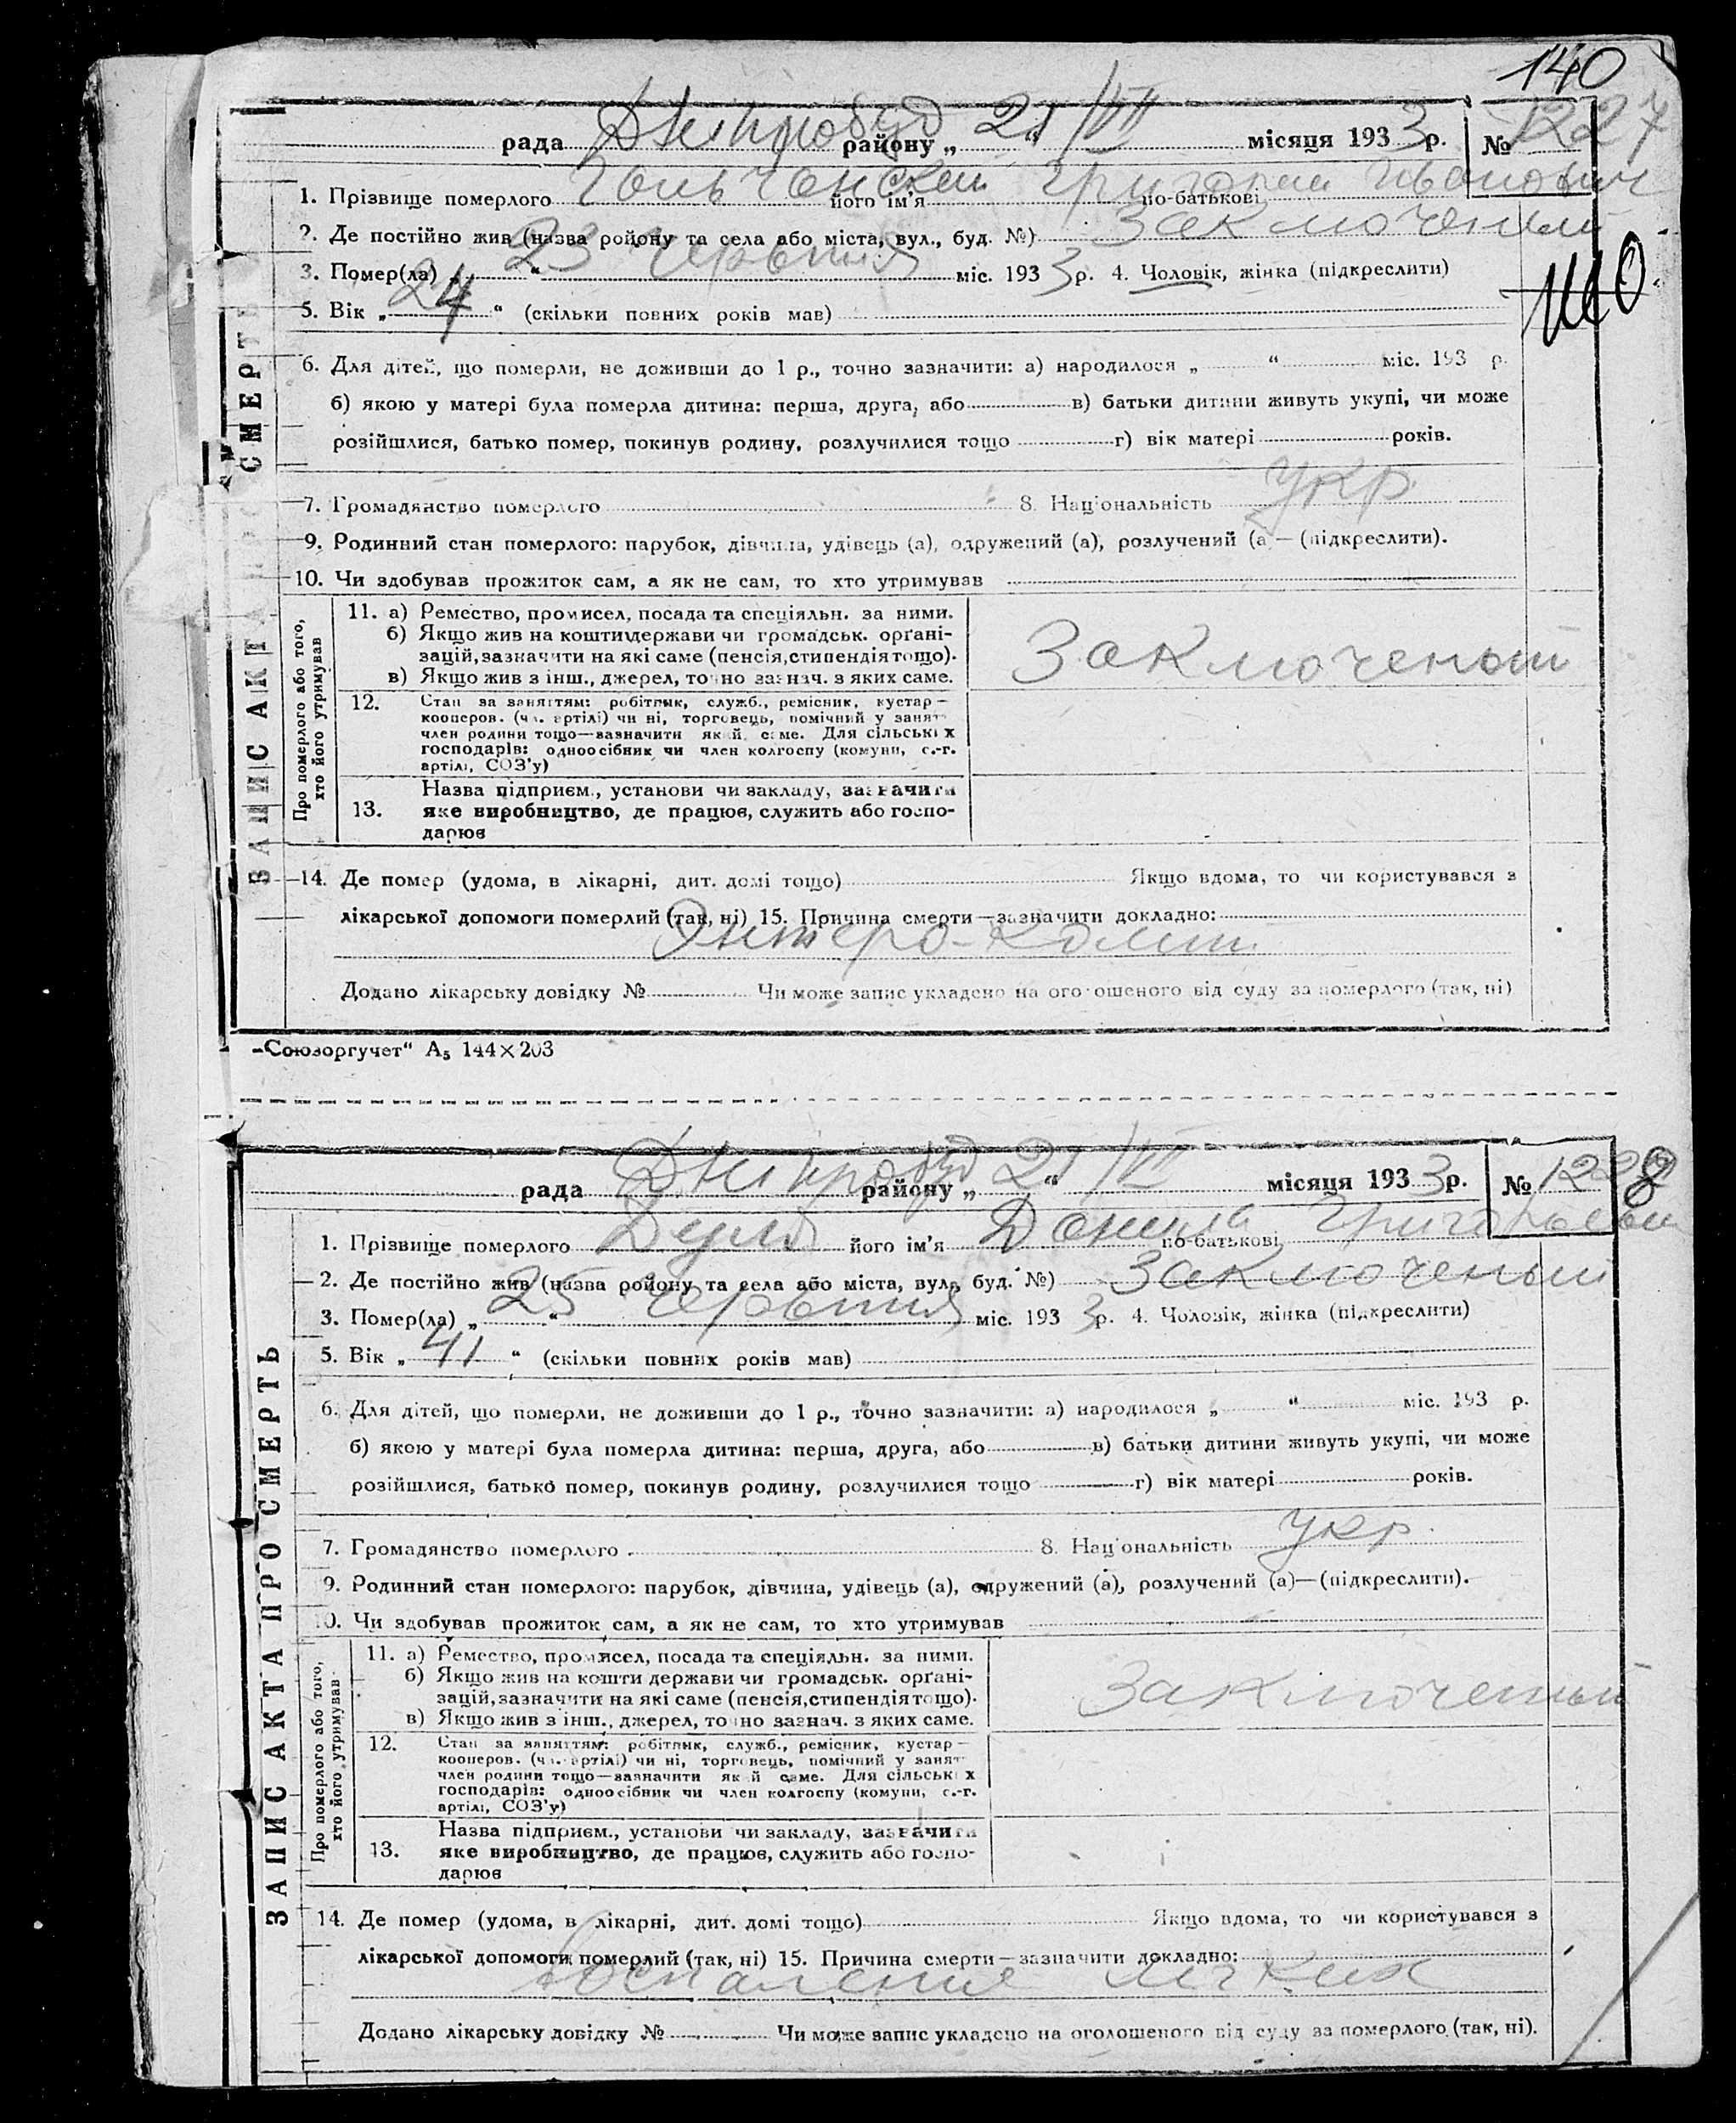 140
рада Дніпробуд району „ 21 “ VII місяця 1933 р. № 1227
1. Прізвище померлого його ім'я Григорий по-батькові Иванович
2. Де постійно жив (назва ройону та села або міста, вул., буд. №) Заключеный
3. Помер(ла) „ 23 “ червтня міс. 1933 р. 4. Чоловік, жінка (підкреслити)
140
5. Вік „ 24 “ (скільки повних років мав)
6. Для дітей, що померли, не доживши до 1 р., точно зазначити: а) народилося „ “ міс. 193 р.
б) якою у матері була померла дитина: перша, друга, або в) батьки дитини живуть укупі, чи може
розійшлися, батько помер, покинув родину, розлучилися тощо г) вік матері років.
7. Громадянство померлого 8. Національність укр.
9. Родинний стан померлого: парубок, дівчина, удівець (а), одружений (а), розлучений (а — (підкреслити).
10. Чи здобував прожиток сам, а як не сам, то хто утримував
ЗАПИС АКТА ПРО СМЕРТЬ
Про померлого або того, хто його утримував
11. а) Ремество, промисел, посада та спеціяльн. за ними.
б) Якщо жив на кошти держави чи громадськ. орґані-
зацій, зазначити на які саме (пенсія, стипендія тощо).
в) Якщо жив з інш., джерел, точно зазнач. з яких саме.
Заключеный
12. Стан за заняттям: робітник, служб., ремісник, кустар —
кооперов. (чл. артілі) чи ні, торговець, помічний у занят
член родини тощо—зазначити який саме. Для сільських
господарів: одноосібник чи член колгоспу (комуни, с.-г.
артілі, СОЗ'у)
13. Назва підприєм., установи чи закладу, зазначити
яке виробництво, де працює, служить або госпо-
дарює
14. Де помер (удома, в лікарні, дит. домі тощо) Якщо вдома, то чи користувався з
лікарської допомоги померлий (так, ні) 15. Причина смерти—зазначити докладно:
Энтеро-колит
Додано лікарську довідку № Чи може запис укладено на оголошеного від суду за померлого (так, ні)
„Союзоргучет“ А5 144×203
рада Дніпробуд району „ 21 “ VII місяця 1933 р. № 1228
1. Прізвище померлого його ім'я Данила по-батькові Григорьевич
2. Де постійно жив (назва ройону та села або міста, вул., буд. №) Заключеный
3. Помер(ла) „ 25 “ червтня міс. 1933 р. 4. Чоловік, жінка (підкреслити)
5. Вік „ 41 “ (скільки повних років мав)
6. Для дітей, що померли, не доживши до 1 р., точно зазначити: а) народилося „ “ міс. 193 р.
б) якою у матері була померла дитина: перша, друга, або в) батьки дитини живуть укупі, чи може
розійшлися, батько помер, покинув родину, розлучилися тощо г) вік матері років.
7. Громадянство померлого 8. Національність укр.
9. Родинний стан померлого: парубок, дівчина, удівець (а), одружений (а), розлучений (а)—(підкреслити).
10. Чи здобував прожиток сам, а як не сам, то хто утримував
ЗАПИС АКТА ПРО СМЕРТЬ
Про померлого або того, хто його утримував
11. а) Ремество, промисел, посада та спеціяльн. за ними.
б) Якщо жив на кошти держави чи громадськ. орґані-
зацій, зазначити на які саме (пенсія, стипендія тощо).
в) Якщо жив з інш., джерел, точно зазнач. з яких саме.
Заключеный
12. Стан за заняттям: робітник, служб., ремісник, кустар —
кооперов. (чл. артілі) чи ні, торговець, помічний у занят
член родини тощо—зазначити який саме. Для сільських
господарів: одноосібник чи член колгоспу (комуни, с.-г.
артілі, СОЗ'у)
13. Назва підприєм., установи чи закладу, зазначити
яке виробництво, де працює, служить або госпо-
дарює
14. Де помер (удома, в лікарні, дит. домі тощо) Якщо вдома, то чи користувався з
лікарської допомоги померлий (так, ні) 15. Причина смерти—зазначити докладно:
Воспаление легких
Додано лікарську довідку № Чи може запис укладено на оголошеного від суду за померлого (так, ні).